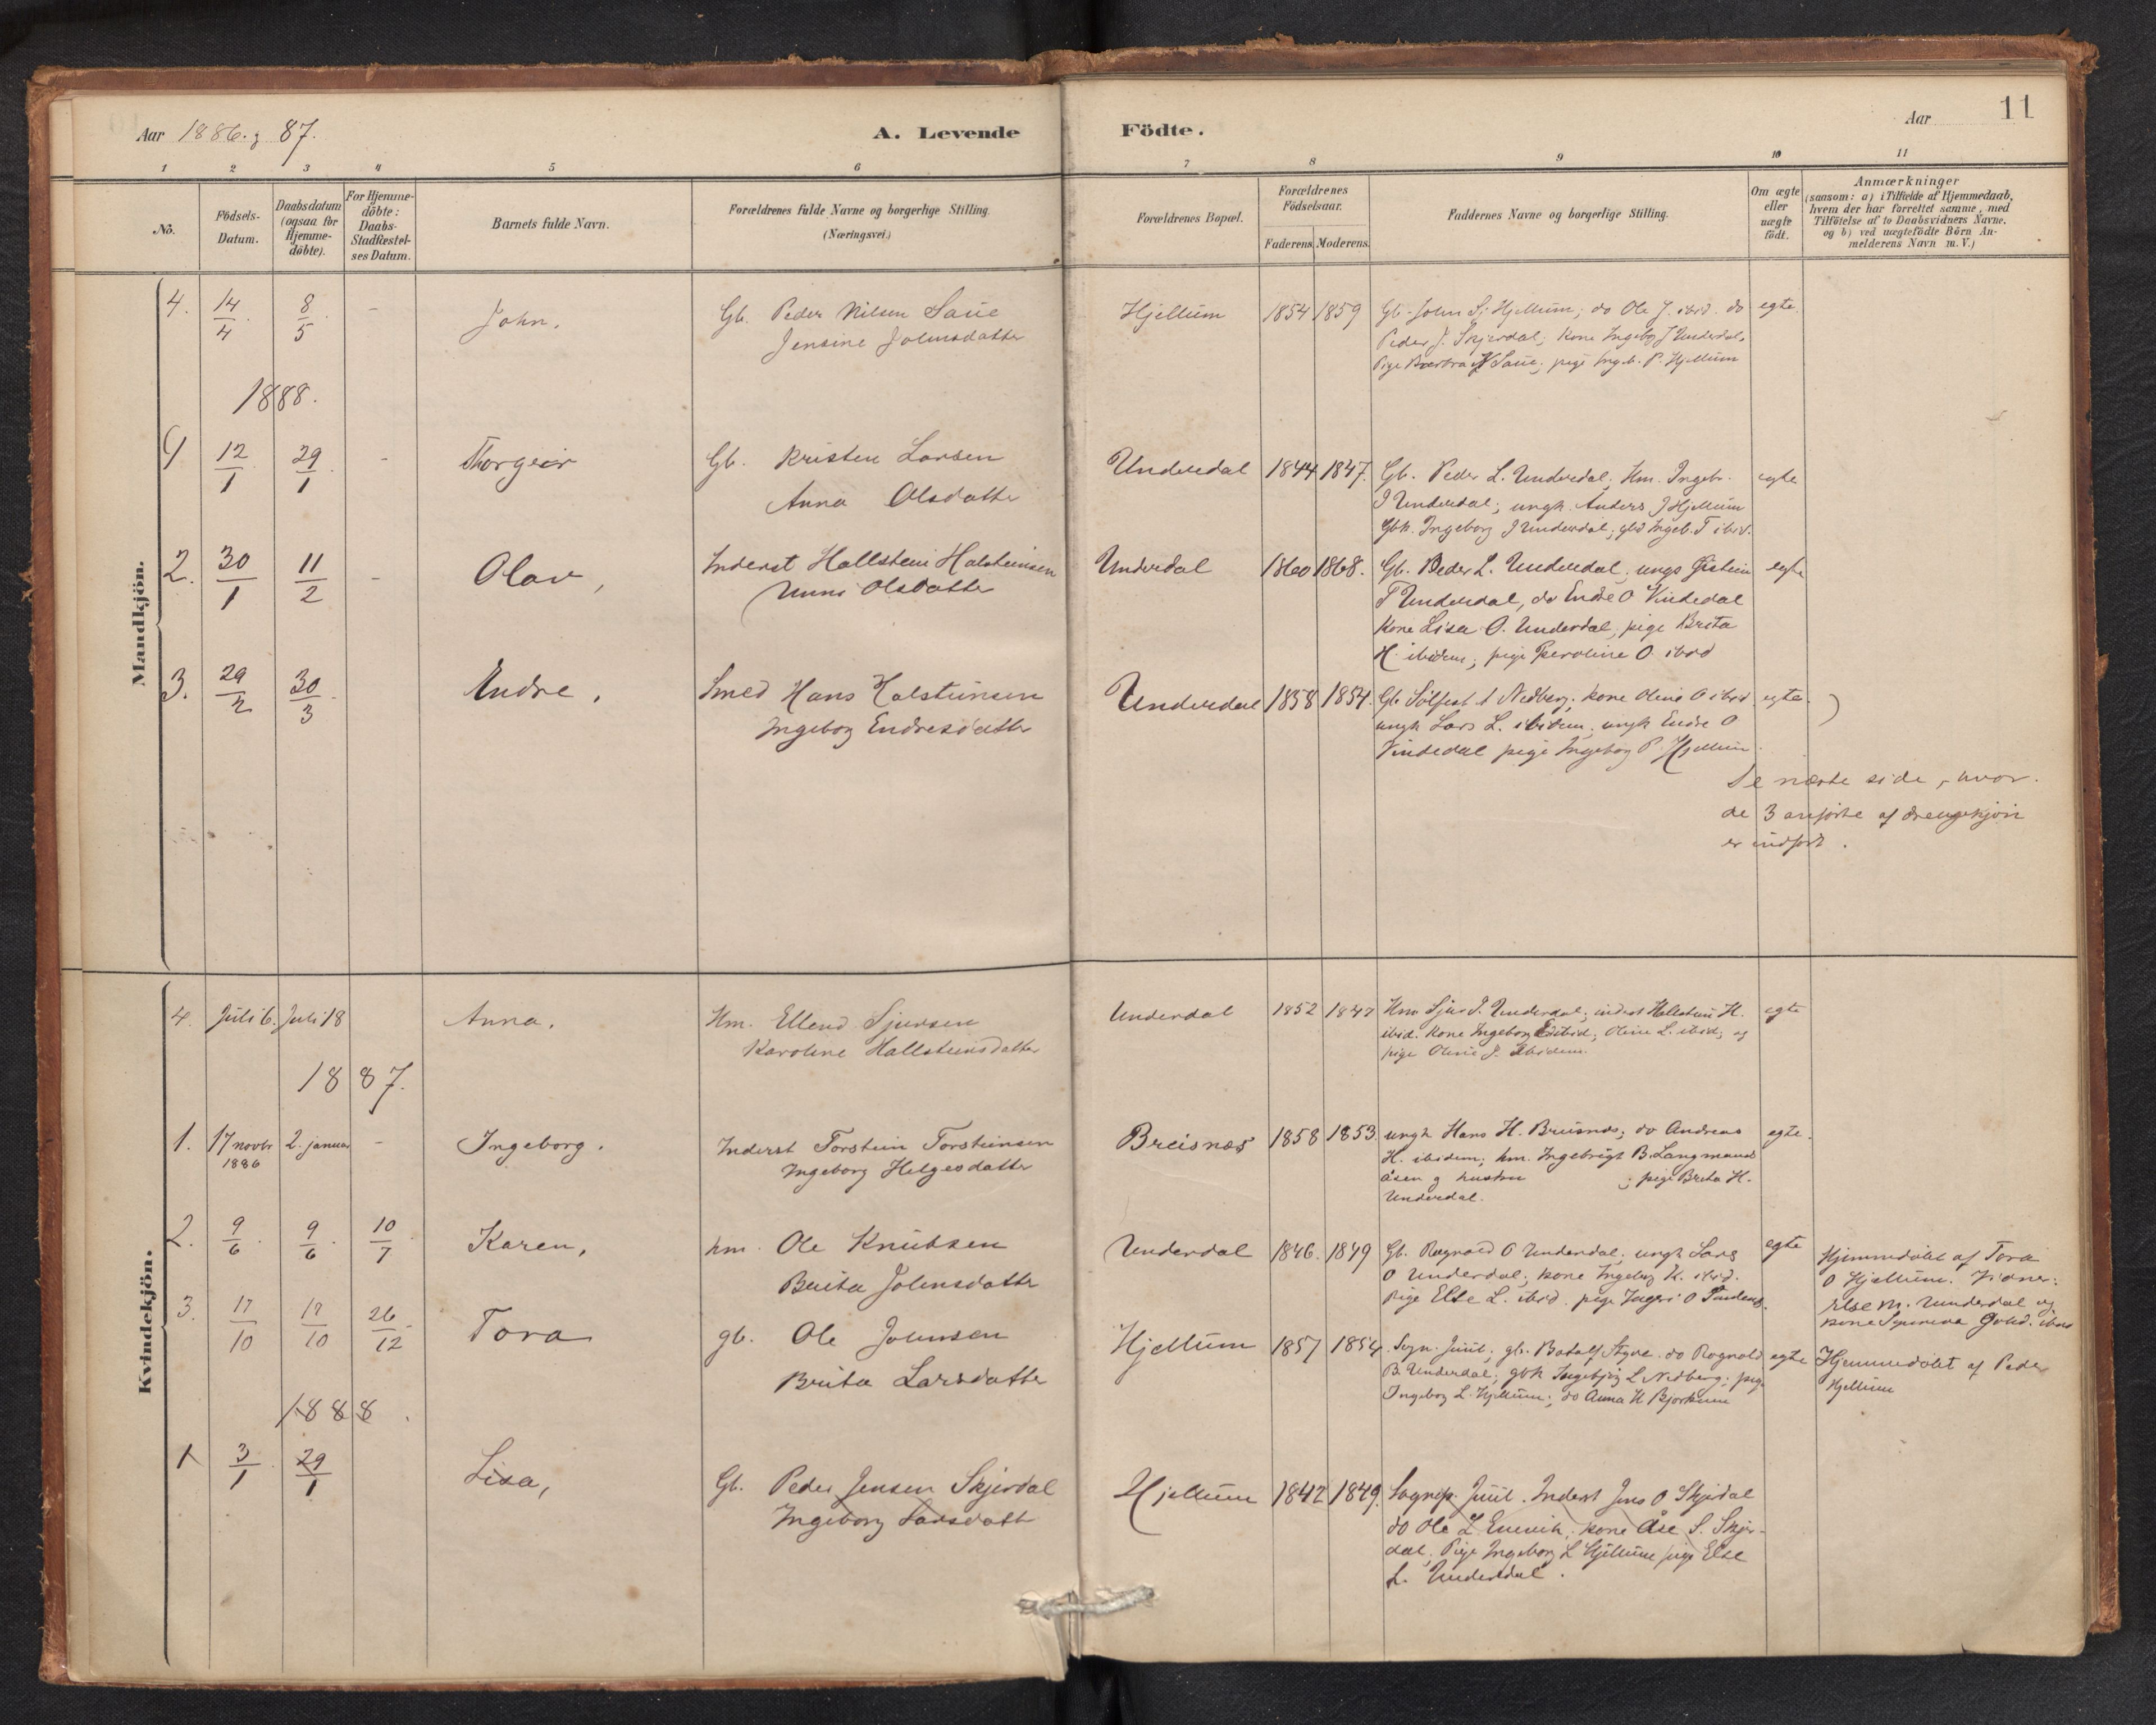 Aar 1886. g 87.
A. Levende
Födte.
Aar
11
1 2 3 4 5 6 7 8 9 10 11
No.
Födsels-
Datum.
Daabsdatum
(ogsaa for
Hjemme-
döbte).
For Hjemme-
döbte:
Daabs-
Stadfæstel-
ses Datum.
Barnets fulde Navn.
Forældrenes fulde Navne og borgerlige Stilling.
(Næringsvei.)
Forældrenes Bopæl.
Forældrenes
Födselsaar.
Faderens. Moderens.
Faddernes Navne og borgerlige Stilling.
Om ægte
eller
uægte
födt.
Anmærkninger
(saasom: a) i Tilfælde af Hjemmedaab,
hvem der har forrettet samme, med
Tilföielse af to Daabsvidners Navne.
og b) ved uægtefödte Börn An-
melderens Navn m. V.)
Mandkjön.
4. 14/4. 8/5. - John. Gb. Peder Nilsen Saue Hjellum 1854 1859 Gb. John S. Hjellum; do Ole J. ibid. do egte.
Jensine Johnsdatter Peder J. Skjerdal; kone Ingeborg J Underdal,
Pige Barbra N Saue; pige Ingb. P. Hjellum
1888.
12/1. 29/1. - Thorgeir Gb. Kristen Larsen Underdal 1844 1847. Gb. Peder L. Underdal; Hm. Ingebr. egte
Anna Olsdatter J Underdal; ungk. Anders J Hjellum
Gbk. Ingeborg J Underdal; gbd Ingeb. T ibid.
2. 30/1 11/2 - Olav, Inderst Hallstein Halsteinsen Underdal 1860 1868. Gb. Peder L. Underdal, ungk Gistein egte
Unni Olsdatter T Underdal, do Endre O Vindedal
Kone Lisa O. Underdal, pige Brita
H. ibidem; pige Peroline O. ibid
3. 29/2 30/3. Endre. Smed Hans Halsteinsen Underdal 1858 1854. Gb Sölfest A Nedberg; kone Oline O ibid egte. )
Ingeborg Endresdatter ungk Lars L. ibidem, ungk Endre O
Vindedal pige Ingeborg P. Hjellum
Se næste side, hvor
de 3 anförte af drengekjön
er indfört.
Kvindekjön.
4. Juli 6. Juli 18 Anna. Hm. Ellend Sjursen Underdal 1852 1847 Hm Sjur J. Underdal; inderst Hallstein H. egte
Karoline Hallsteinsdatter ibid. Kone Ingeborg E ibid; Oline L. ibid; og
pige Oline J. ibidem.
1887.
1. 17 novbr 2. januar - Ingeborg. Inderst Torstein Torsteinsen Breisnæs 1858 1853. ungk Hans H. Breisnæs; do Andreas egte.
1886 Ingeborg Helgesdatter H. ibidem; hm. Ingebrigt B. Langmands
åsen g hustru ; pige Brita H.
Underdal.
2. 9/6. 9/6. 10/7. Karen, hm. Ole Knutsen Underdal 1846. 1849 Gb. Ragnald O Underdal; ungk Lars egte Hjemmedöbt af Tora
Brita Johnsdatter O Underdal; kone Ingeborg K. ibid. O Hjellum. Vidner:
Pige Else L. ibid. pige Ingeri O Else M. Underdal og
kone ibid
3. 17/10 17/10 26/12. Tora gb. Ole Johnsen Hjellum 1857 1854. Sogn. Juul; gb. Botolf Styve do Ragnald egte Hjemmedöbt af Peder
Brita Larsdatter B. Underdal; gbk Ingebjörg L Nedberg; pige Hjellum
Ingeborg L. Hjellum; do Anna H Bjorkum
1888.
1 3/1. 29/1 Lisa, Gb. Peder Jensen Skjerdal Hjellum 1842 1849. Sognep. Juul. Inderst Jens O Skjerdal
Ingeborg Larsdatt do Ole L. ; kone Åse S. Skjer-
dal, Pige Ingeborg L Hjellum pige Else
L. Underdal.